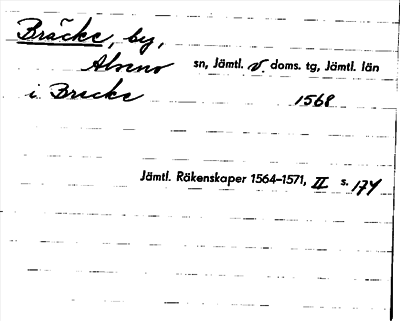 Bräcke, by,
Alsens sn, Jämtl. v. doms. tg, Jämtl. län
i Brecke 1568
Jämtl. Räkenskaper 1564-1571, II s. 174